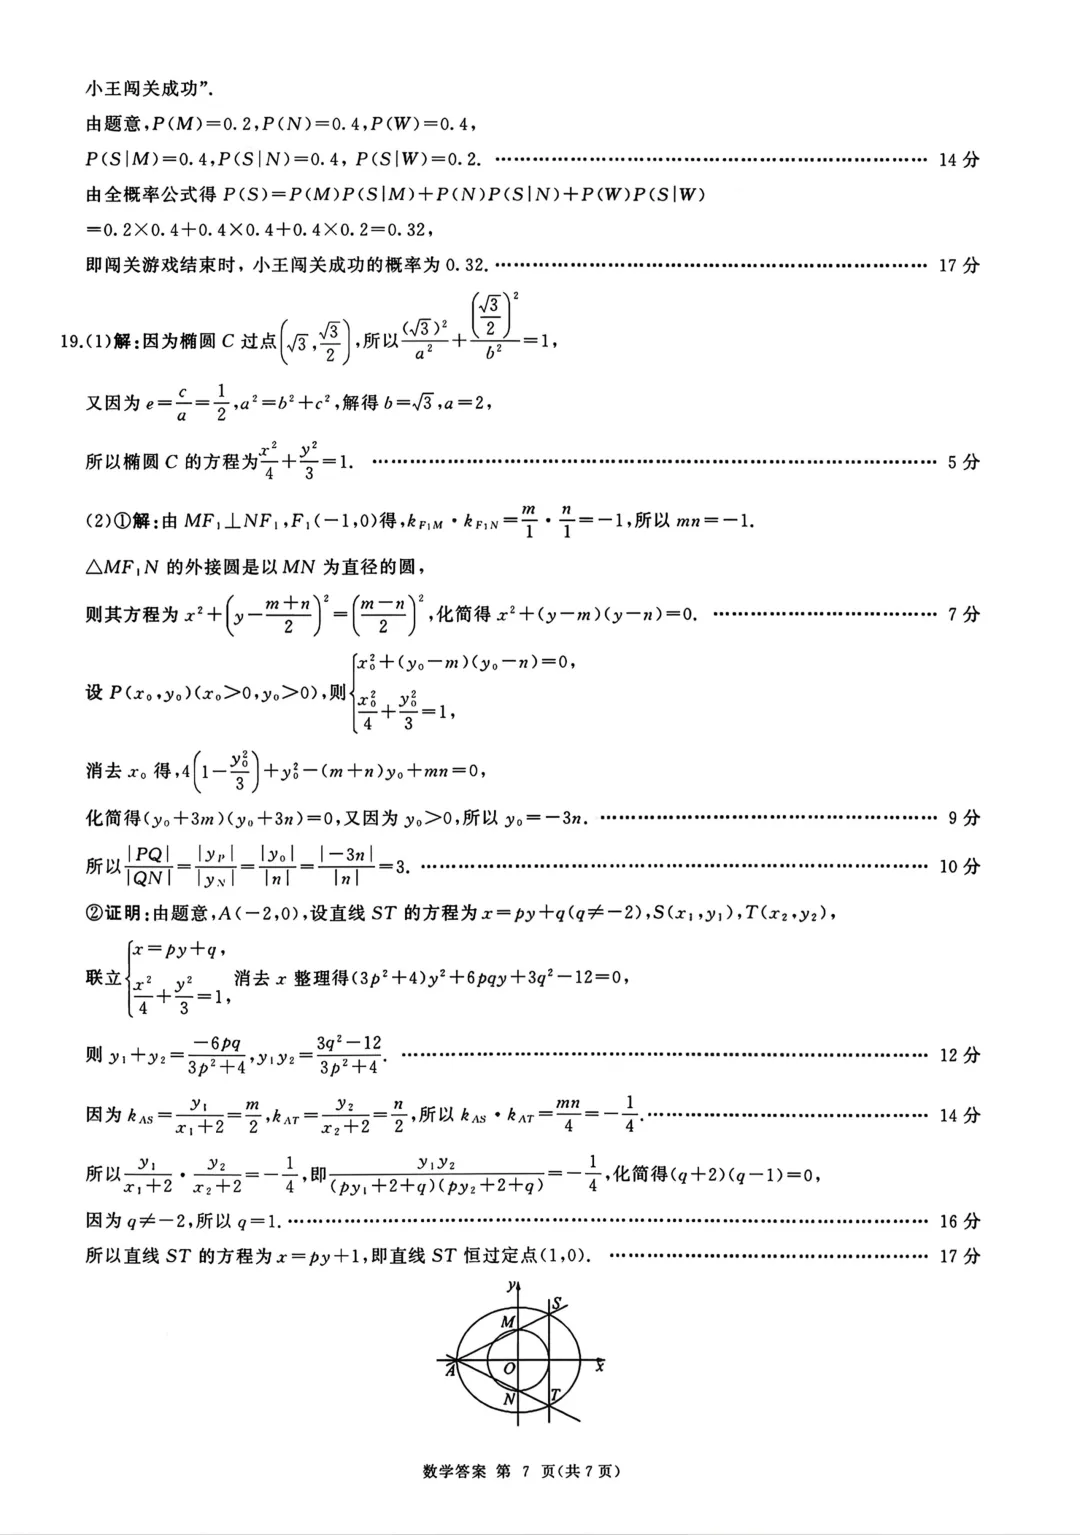 小王闯关成功”.
由题意,P(M)=0.2,P(N)=0.4,P(W)=0.4,
P(S|M)=0.4,P(S|N)=0.4, P(S|W)=0.2. ………………………………………… 14分
由全概率公式得 P(S)=P(M)P(S|M)+P(N)P(S|N)+P(W)P(S|W)
=0.2×0.4+0.4×0.4+0.4×0.2=0.32,
即闯关游戏结束时, 小王闯关成功的概率为 0.32. ………………………………………… 17分
19.(1)解:因为椭圆 C 过点(√3,√3/2),所以(√3)²/a²+(√3/2)²/b²=1,
又因为 e=c/a=1/2,a²=b²+c²,解得 b=√3,a=2,
所以椭圆 C 的方程为x²/4+y²/3=1. ………………………………………… 5分
(2)①解:由 MF₁⊥NF₁,F₁(−1,0)得,k_{F₁M}·k_{F₁N}=m/1·n/1=−1,所以 mn=−1.
△MF₁N 的外接圆是以 MN 为直径的圆,
则其方程为 x²+(y−(m+n)/2)²=((m−n)/2)²,化简得 x²+(y−m)(y−n)=0. ………………… 7分
设 P(x₀,y₀)(x₀>0,y₀>0),则{x₀²+(y₀−m)(y₀−n)=0, x₀²/4+y₀²/3=1,
消去 x₀ 得,4(1−y₀²/3)+y₀²−(m+n)y₀+mn=0,
化简得(y₀+3m)(y₀+3n)=0,又因为 y₀>0,所以 y₀=−3n. ………………………………… 9分
所以|PQ|/|QN|=|y_P|/|y_N|=|y₀|/|n|=|−3n|/|n|=3. ………………………………………… 10分
②证明:由题意,A(−2,0),设直线 ST 的方程为 x=py+q(q≠−2),S(x₁,y₁),T(x₂,y₂),
联立{x=py+q, x²/4+y²/3=1, 消去 x 整理得(3p²+4)y²+6pqy+3q²−12=0,
则 y₁+y₂=−6pq/(3p²+4),y₁y₂=(3q²−12)/(3p²+4). ………………………………………… 12分
因为 k_{AS}=y₁/(x₁+2)=m/2,k_{AT}=y₂/(x₂+2)=n/2,所以 k_{AS}·k_{AT}=mn/4=−1/4. ………………………… 14分
所以y₁/(x₁+2)·y₂/(x₂+2)=−1/4,即y₁y₂/((py₁+2+q)(py₂+2+q))=−1/4,化简得(q+2)(q−1)=0,
因为 q≠−2,所以 q=1. ………………………………………… 16分
所以直线 ST 的方程为 x=py+1,即直线 ST 恒过定点(1,0). ………………………………… 17分
y
S
M
A
O
x
N
T
数学答案 第 7 页(共7页)